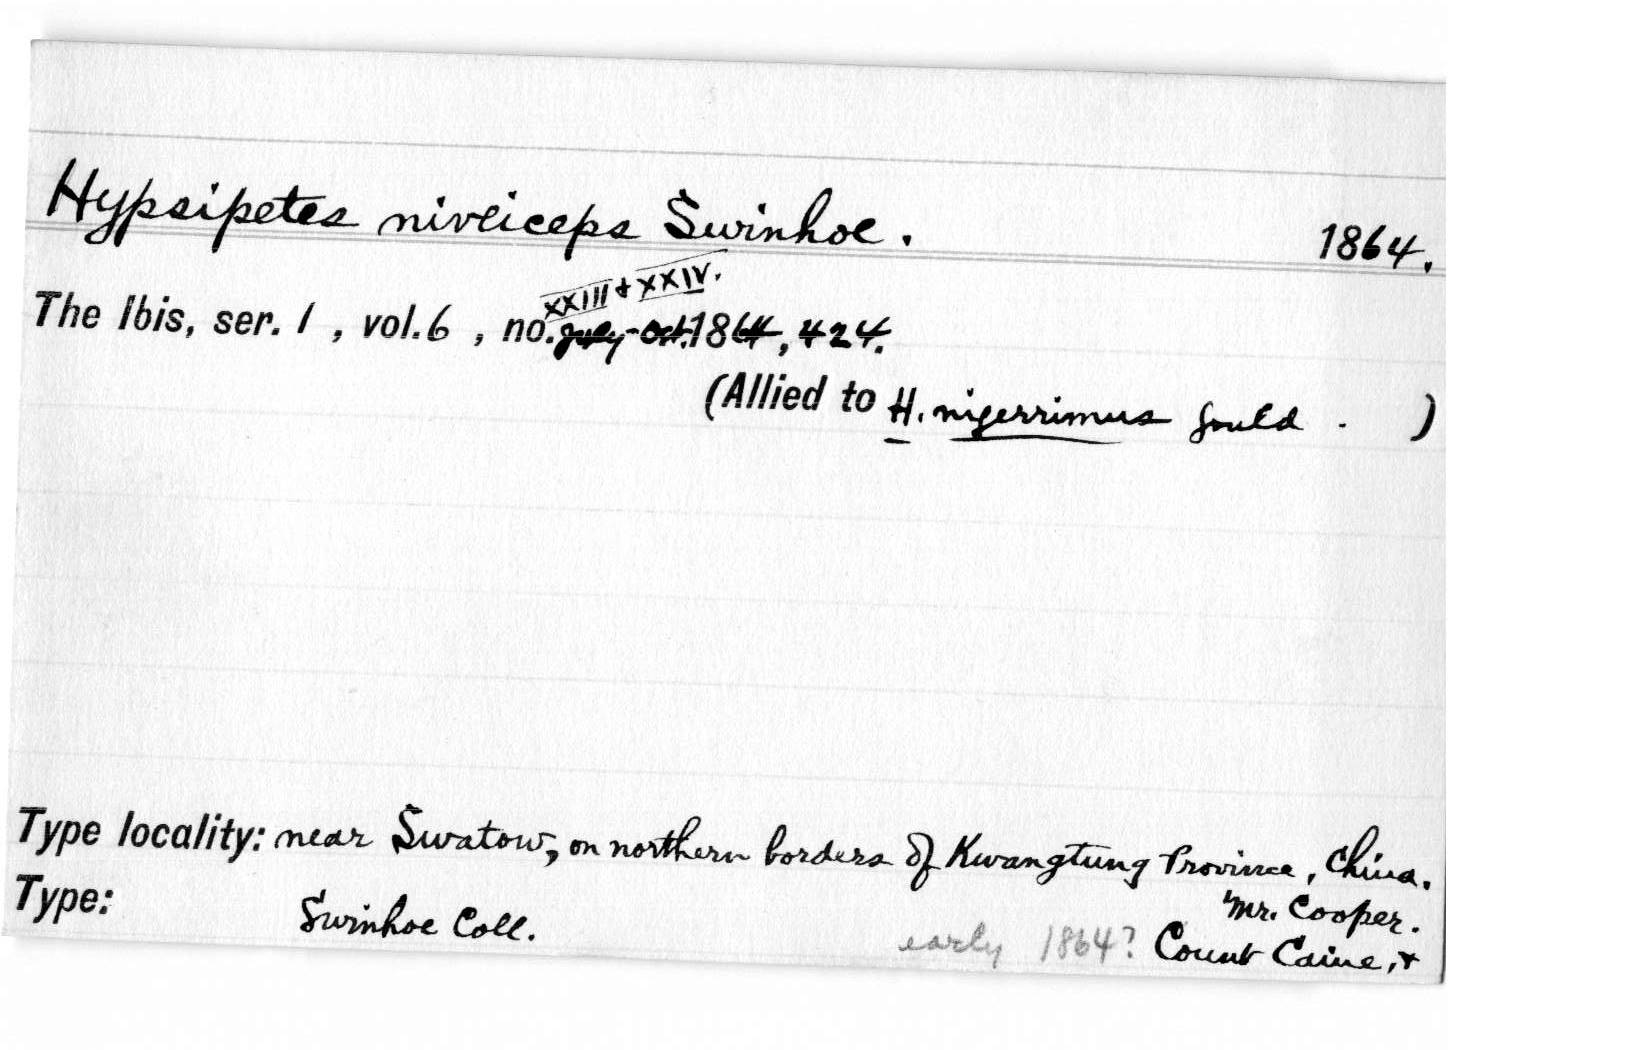 Hypsipetes niveiceps Swinhoe. 1864.
XXIII + XXIV.
The Ibis, ser. 1 , vol. 6 , no. July-Oct. 1864, 424.
(Allied to H. nigerrimus Gould . )
Type locality: near Swatow, on northern borders of Kwangtung Province, China.
Mr. Cooper.
Type: Swinhoe Coll. early 1864? Count Caine, +